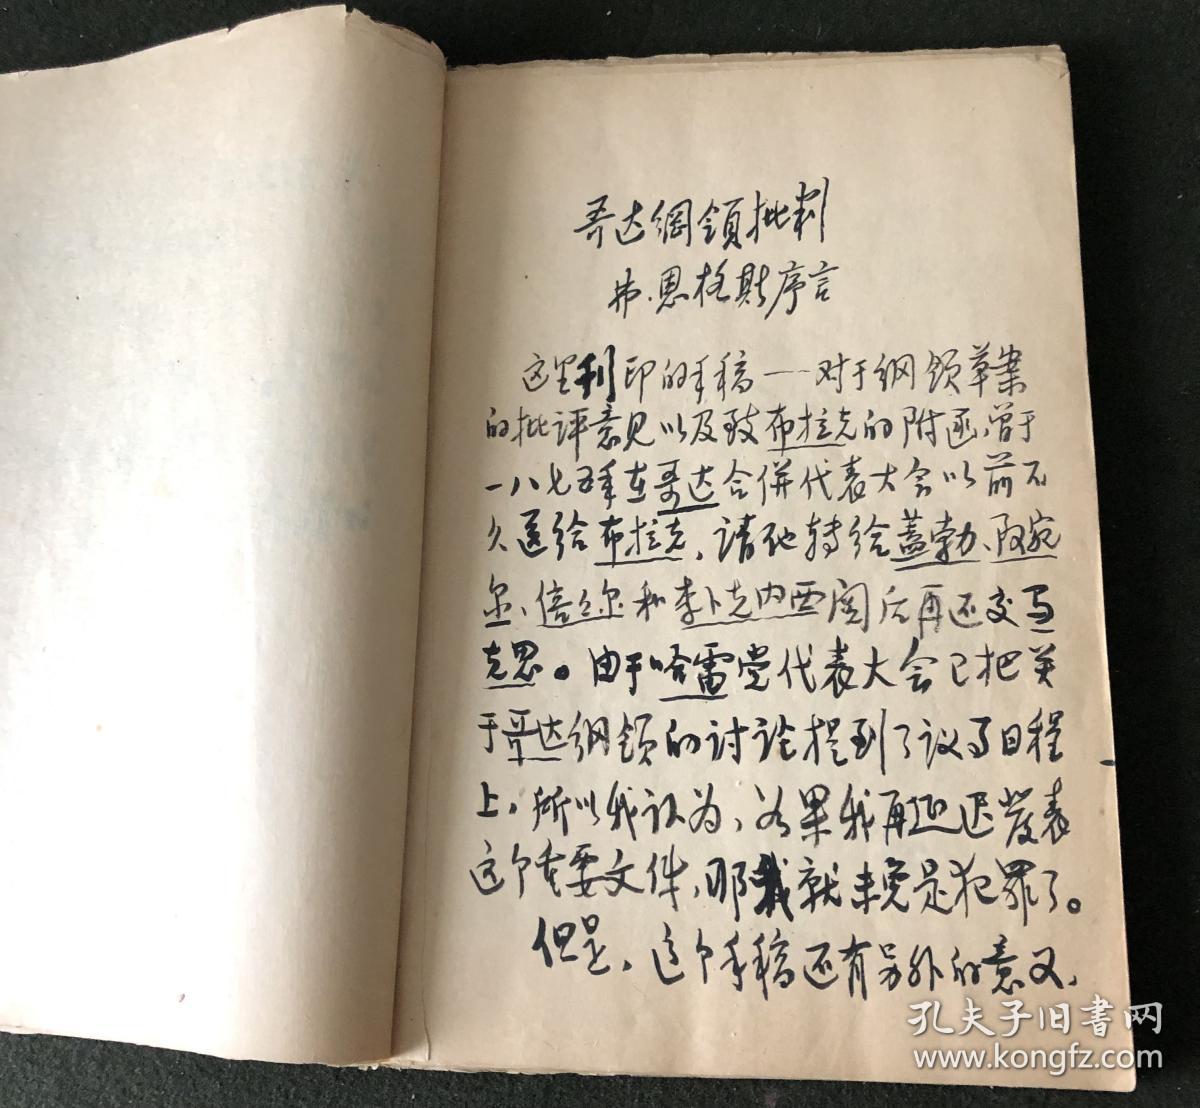 哥达綱領批判
弗.恩格斯序言
这里刊印的手稿——对于纲领草案
的批评意见以及致布拉克的附函,曾于
一八七五年在哥达合併代表大会以前不
久送给布拉克,请他转给盖勃、阿宛
尔、倍倍尔和李卜克内西阅后再还交马
克思。由于哈雷党代表大会已把关
于哥达纲领的讨论提到了议事日程
上,所以我认为,若果我再延迟發表
这个重要文件,那我就未免是犯罪了。
但是,这个手稿还有另外的意义,
孔夫子旧書网
www.kongfz.com